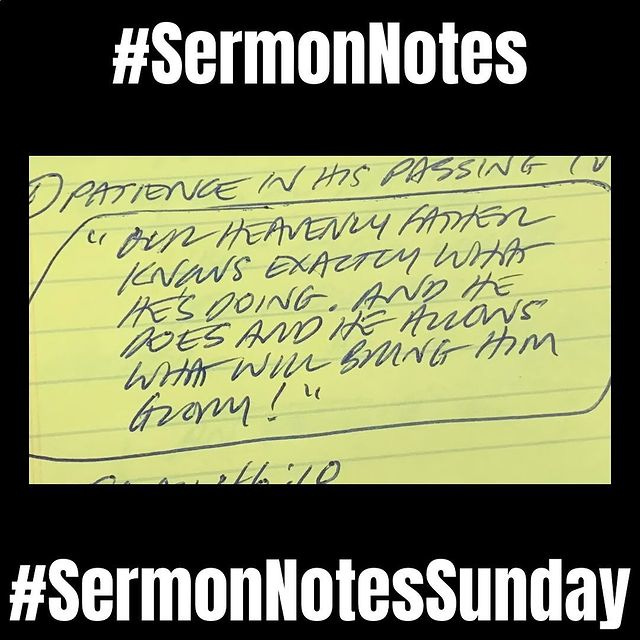 #SermonNotes
1) PATIENCE IN HIS PASSING
"OUR HEAVENLY FATHER
KNOWS EXACTLY WHAT
HE'S DOING. AND HE
DOES AND HE ALLOWS
WHAT WILL BRING HIM
GLORY!"
#SermonNotesSunday